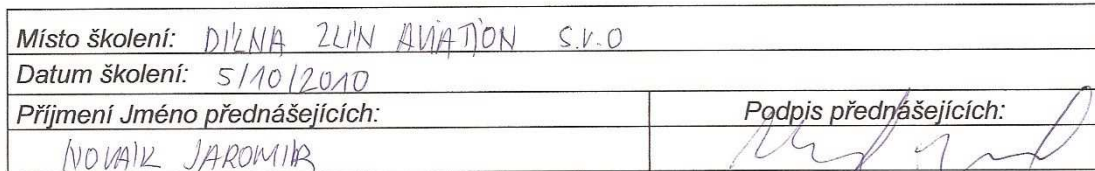 Místo školení: DÍLNA ZLÍN AVIATION S.R.O
Datum školení: 5/10/2010
Příjmení Jméno přednášejících: Podpis přednášejících:
NOVÁK JAROMÍR